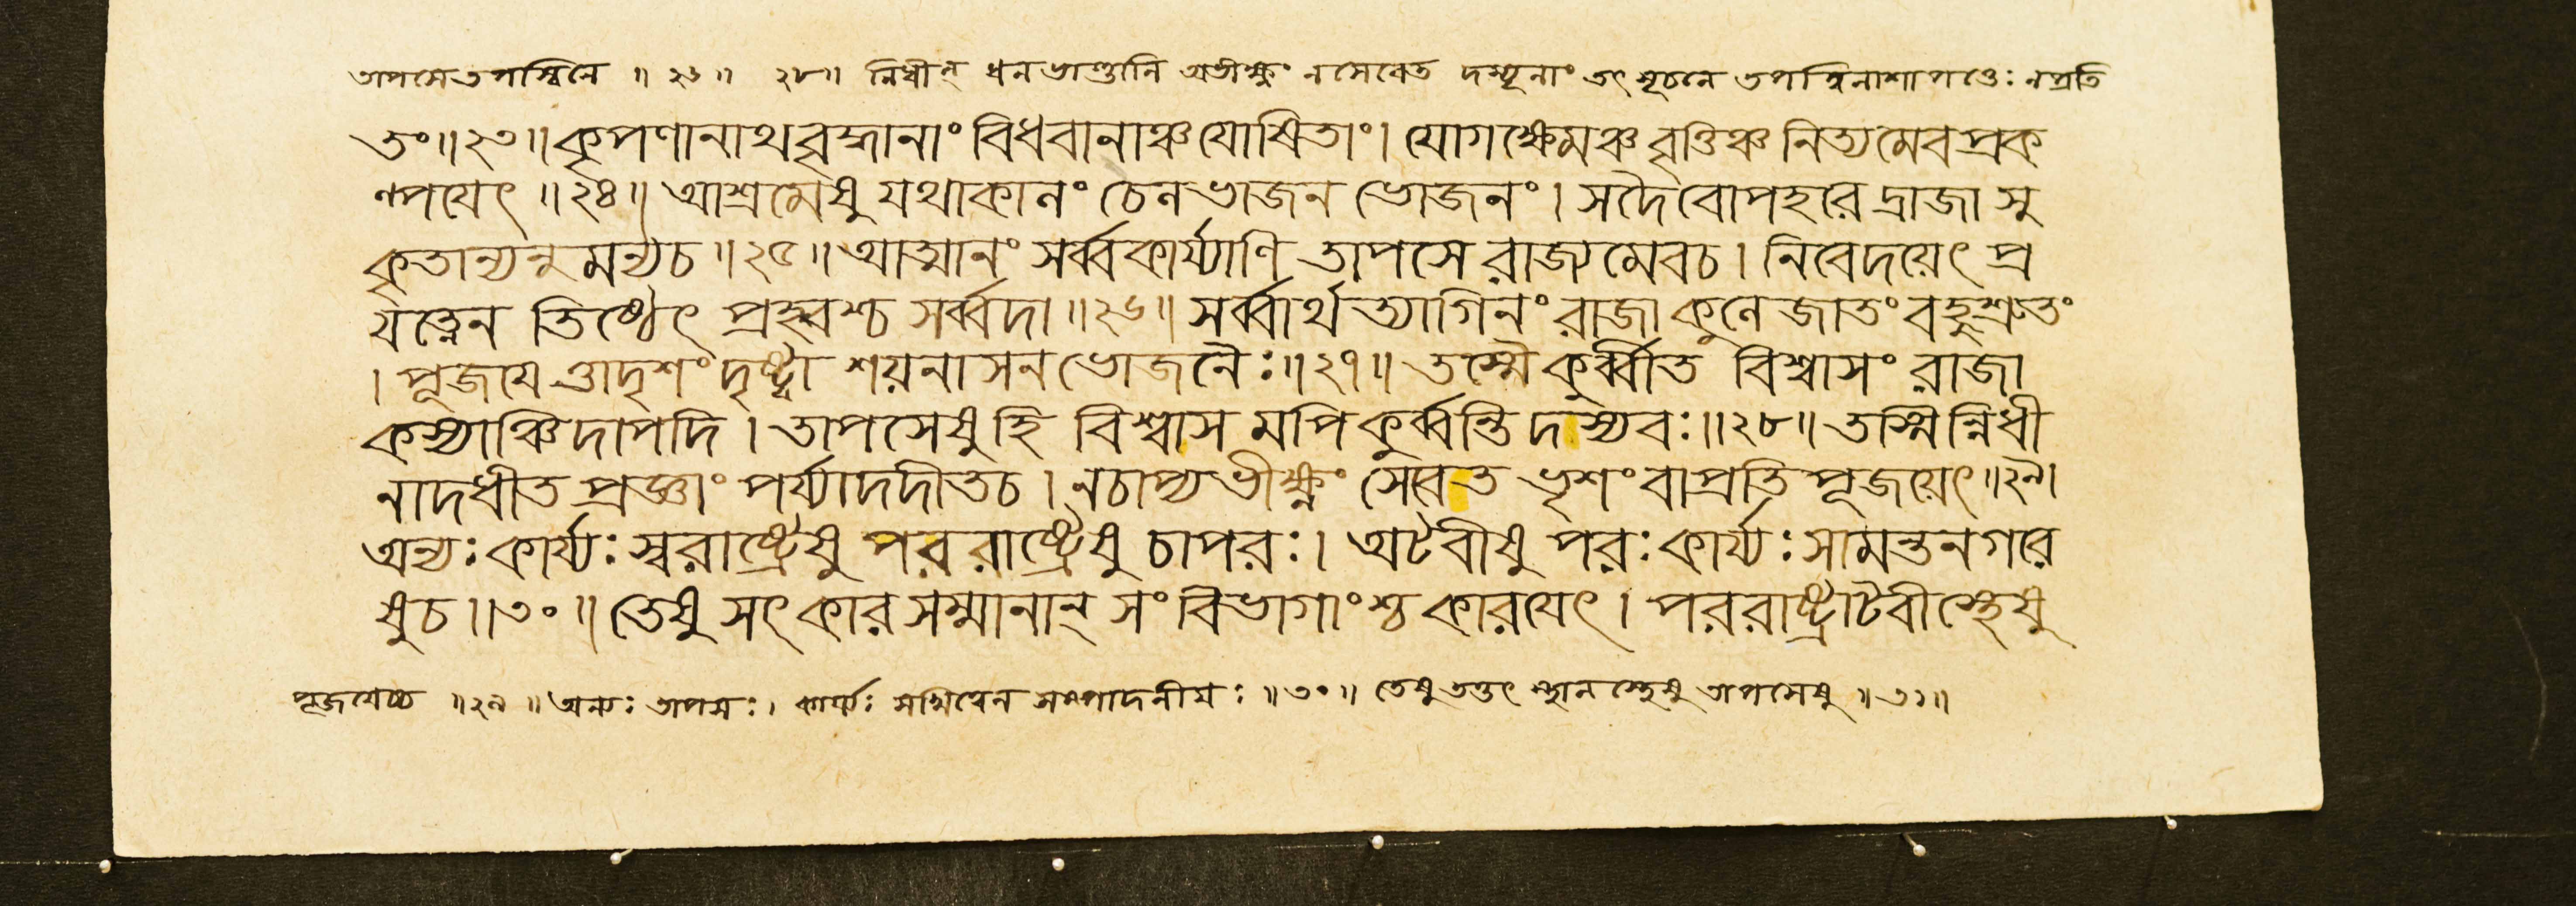 তাপসে তপস্বিনে ॥ ২৬ ॥ ২৮ ॥ নিধীন্ ধনভাণ্ডানি অভীক্ষ্ণং ন সেবেত দস্যূনাং তৎ সূচনে তপস্বিনাশাপত্তেঃ ন প্রতি
তং॥২৩॥কৃপণানাথবৃদ্ধানাং বিধবানাঞ্চ যোষিতাং। যোগক্ষেমঞ্চ বৃত্তিঞ্চ নিত্যমেব প্রক
ল্পয়েৎ ॥২৪॥ আশ্রমেষু যথাকালং চেলভাজন ভোজনং। সদৈবোপহরেদ্রাজা সু
কৃতান্যনুমন্যচ ॥২৫॥ আত্মানং সর্ব্বকার্য্যাণি তাপসে রাজ্যমেবচ। নিবেদয়েৎ প্র
যত্নেন তিষ্ঠেৎ প্রহ্বশ্চ সর্ব্বদা ॥২৬॥ সর্ব্বার্থ ত্যাগিনং রাজা কুলে জাতং বহুশ্রুতং
। পূজয়েত্তাদৃশং দৃষ্ট্বা শয়নাসন ভোজনৈঃ॥২৭॥ তস্মৈ কুর্ব্বীত বিশ্বাসং রাজা
কস্যাঞ্চিদাপদি। তাপসেষু হি বিশ্বাস মপি কুর্ব্বন্তি দস্যবঃ॥২৮॥ তস্মিন্নিধী
নাদধীত প্রজ্ঞাং পর্য্যাদদীতচ। নচাপ্যভীক্ষ্ণং সেবেত ভৃশং বা প্রতি পূজয়েৎ॥২৯।
অন্যঃ কার্য্যঃ স্বরাষ্ট্রেষু পররাষ্ট্রেষু চাপরঃ। অটবীষু পরঃ কার্য্যঃ সামন্তনগরে
ষুচ॥৩০॥ তেষু সৎকারসম্মানান্ সংবিভাগাংশ্চ কারয়েৎ। পররাষ্ট্রাটবীস্থেষু
পূজয়েচ্চ ॥২৯॥ অন্যঃ তাপসঃ। কার্য্যঃ সখিত্বেন সম্পাদনীয়ঃ ॥৩০॥ তেষু তত্তৎ স্থানস্থেষু তাপসেষু ॥৩১॥